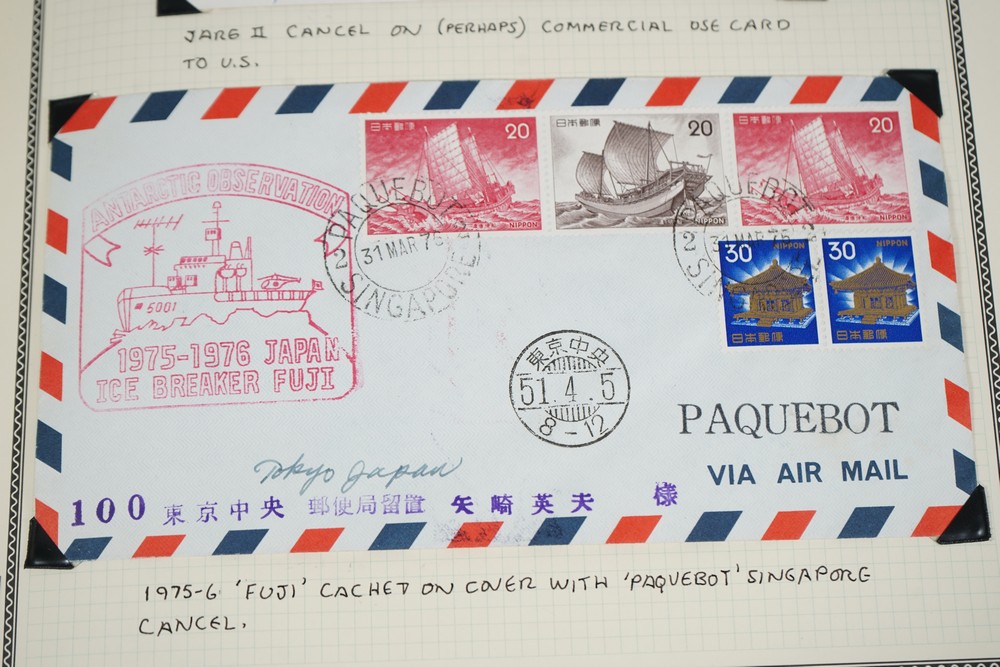 JARE II CANCEL ON (PERHAPS) COMMERCIAL USE CARD
TO U.S.
日本郵便 20
NIPPON
日本郵便 20
NIPPON
日本郵便 20
NIPPON
ANTARCTIC OBSERVATION
5001
1975-1976 JAPAN
ICE BREAKER FUJI
PAQUEBOT
2 31 MAR 76
SINGAPORE
PAQUEBOT
2 31 MAR 76
30 NIPPON
日本郵便
30 NIPPON
日本郵便
東京中央
51.4.5
8-12
PAQUEBOT
VIA AIR MAIL
Tokyo Japan
100 東京中央 郵便局留置 矢崎英夫 様
1975-6 'FUJI' CACHET ON COVER WITH 'PAQUEBOT' SINGAPORE
CANCEL.